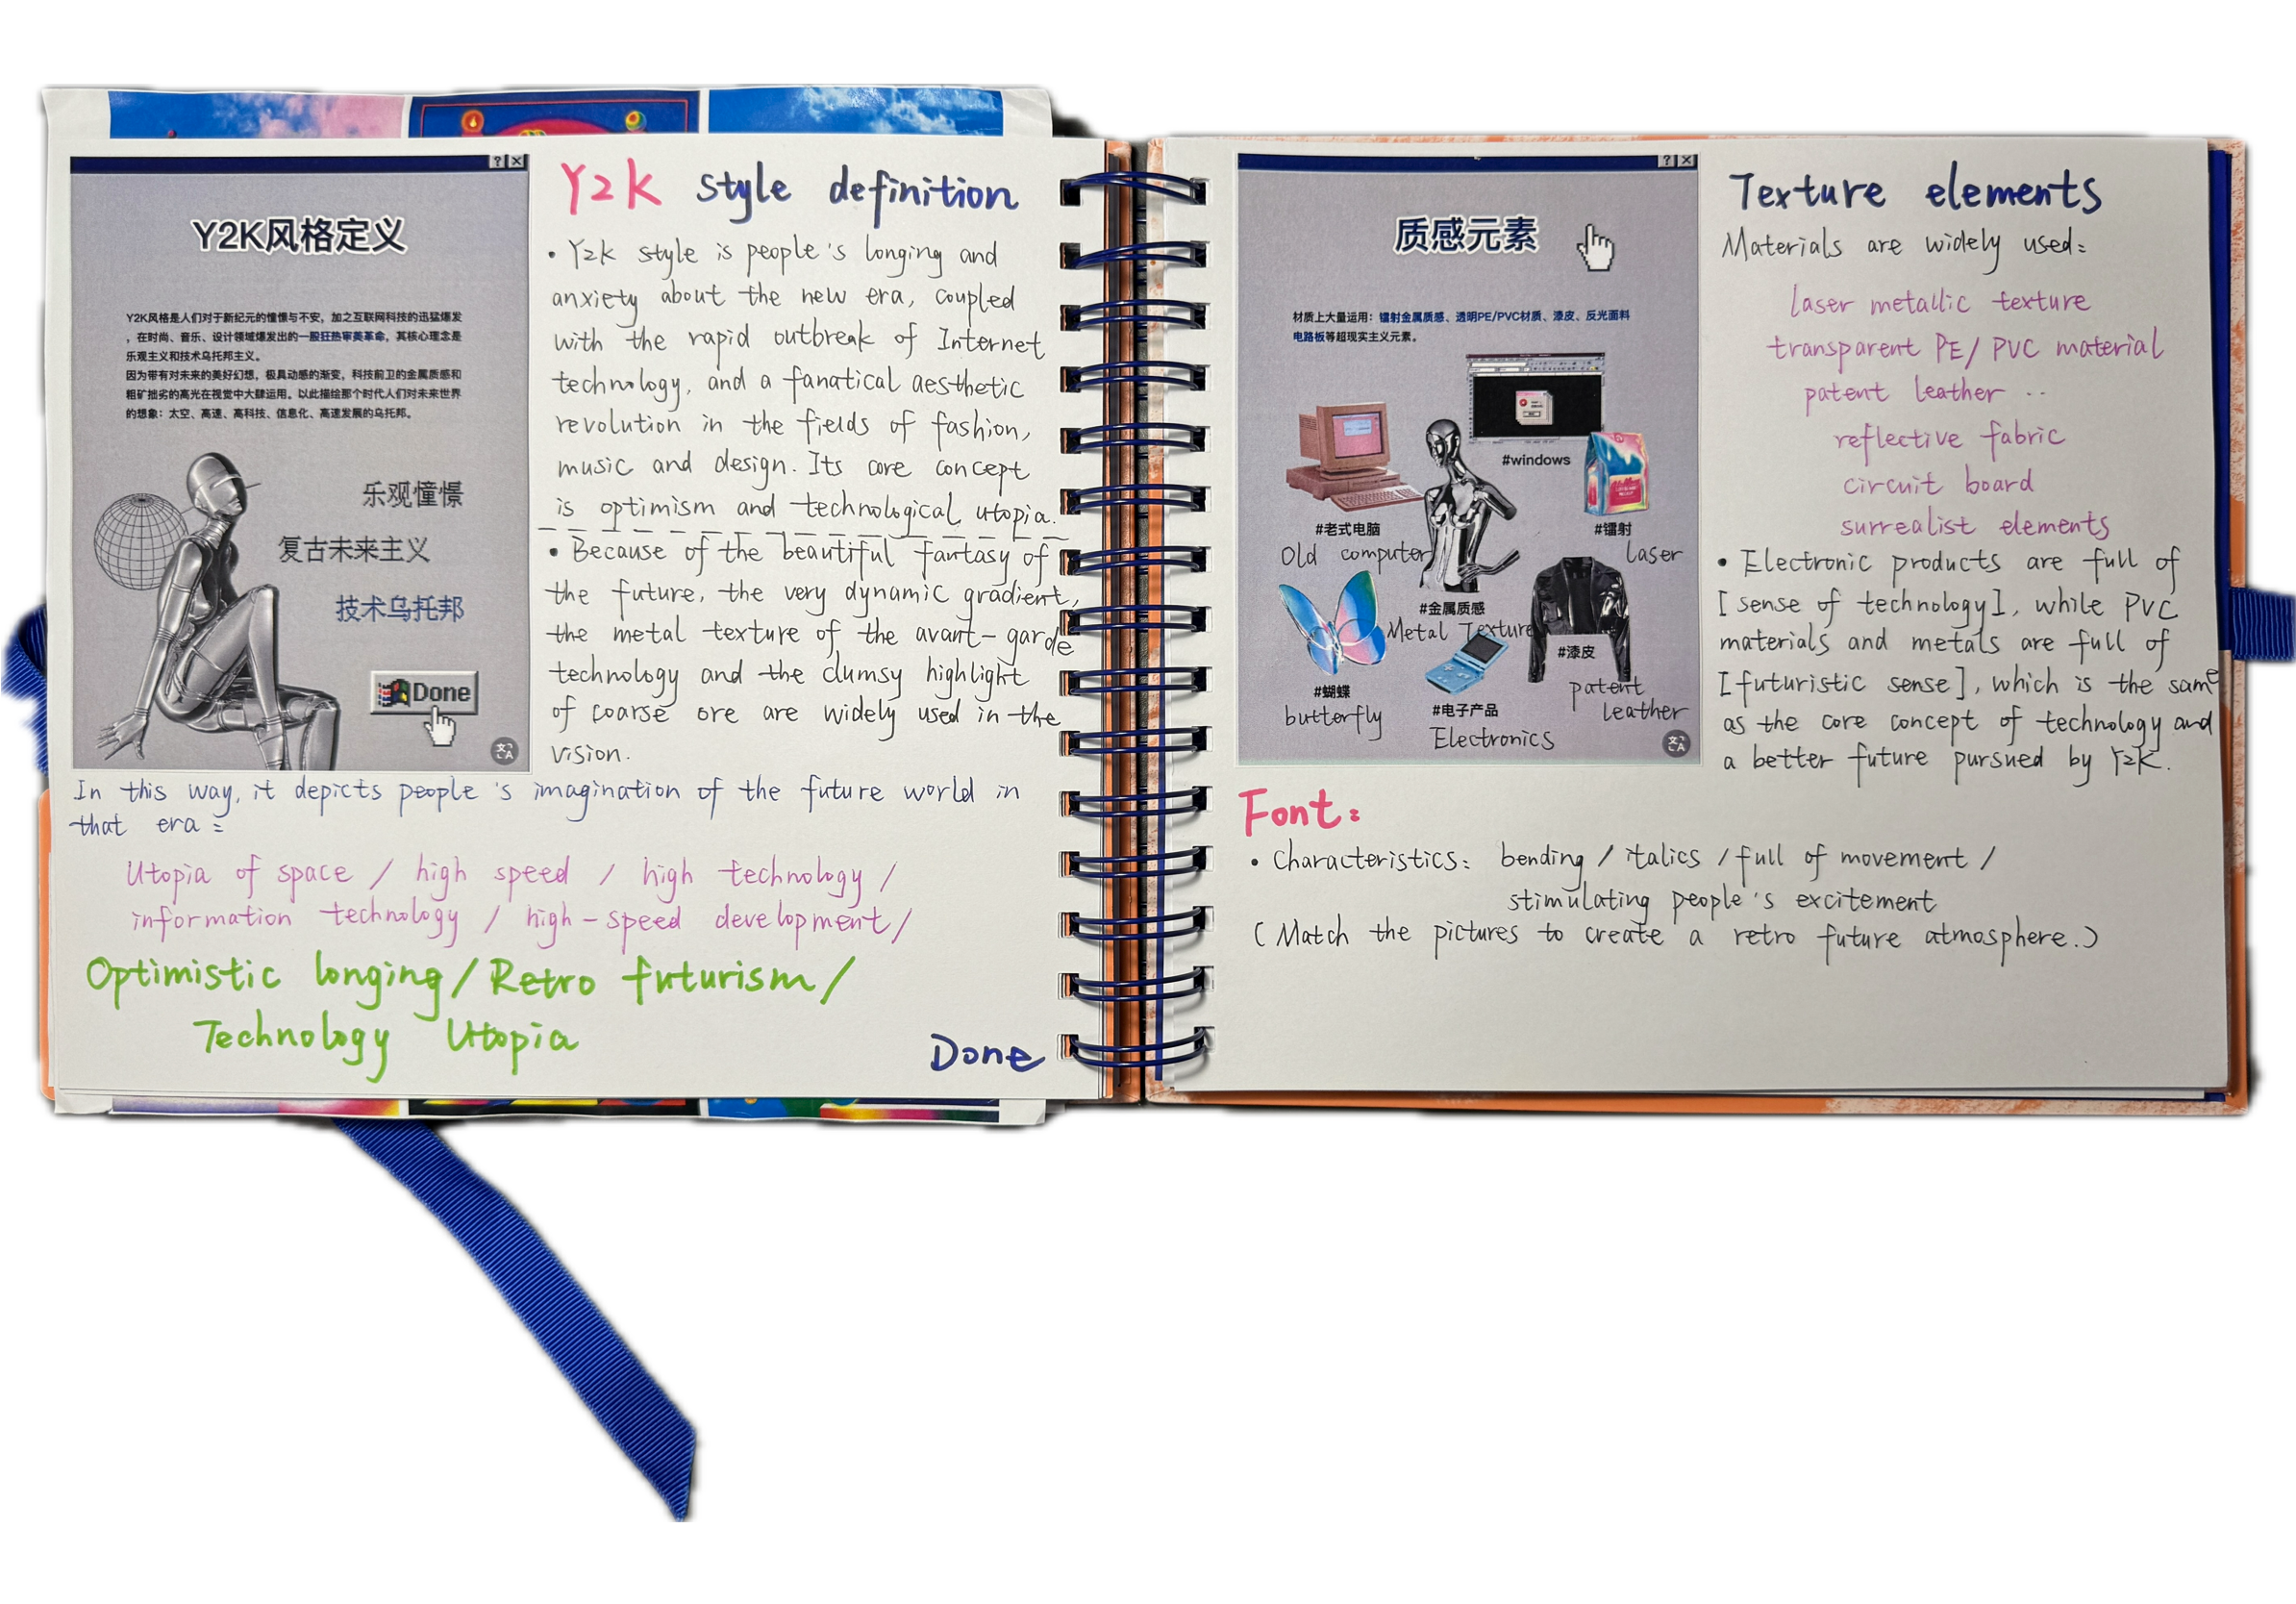 Y2K风格定义
Y2K风格是人们对于新纪元的憧憬与不安，加之互联网科技的迅猛爆发
，在时尚、音乐、设计领域爆发出的一股狂热审美革命，其核心理念是
乐观主义和技术乌托邦主义。
因为带有对未来的美好幻想，极具动感的渐变，科技前卫的金属质感和
粗矿拙劣的高光在视觉中大肆运用。以此描绘那个时代人们对未来世界
的想象：太空、高速、高科技、信息化、高速发展的乌托邦。
乐观憧憬
复古未来主义
技术乌托邦
Done
Y2K style definition
• Y2K style is people's longing and
anxiety about the new era, coupled
with the rapid outbreak of Internet
technology, and a fanatical aesthetic
revolution in the fields of fashion,
music and design. Its core concept
is optimism and technological utopia.
• Because of the beautiful fantasy of
the future, the very dynamic gradient,
the metal texture of the avant-garde
technology and the clumsy highlight
of coarse ore are widely used in the
vision.
In this way, it depicts people's imagination of the future world in
that era:
Utopia of space / high speed / high technology /
information technology / high-speed development /
Optimistic longing / Retro futurism /
Technology Utopia
Done
质感元素
材质上大量运用：镭射金属质感、透明PE/PVC材质、漆皮、反光面料
电路板等超现实主义元素。
#windows
#老式电脑
Old computer
#镭射
laser
#金属质感
Metal Texture
#漆皮
patent
leather
#蝴蝶
butterfly
#电子产品
Electronics
Texture elements
Materials are widely used:
laser metallic texture
transparent PE/ PVC material
patent leather ..
reflective fabric
circuit board
surrealist elements
• Electronic products are full of
[sense of technology], while PVC
materials and metals are full of
[futuristic sense], which is the same
as the core concept of technology and
a better future pursued by Y2K.
Font:
• Characteristics: bending / italics / full of movement /
stimulating people's excitement
(Match the pictures to create a retro future atmosphere.)